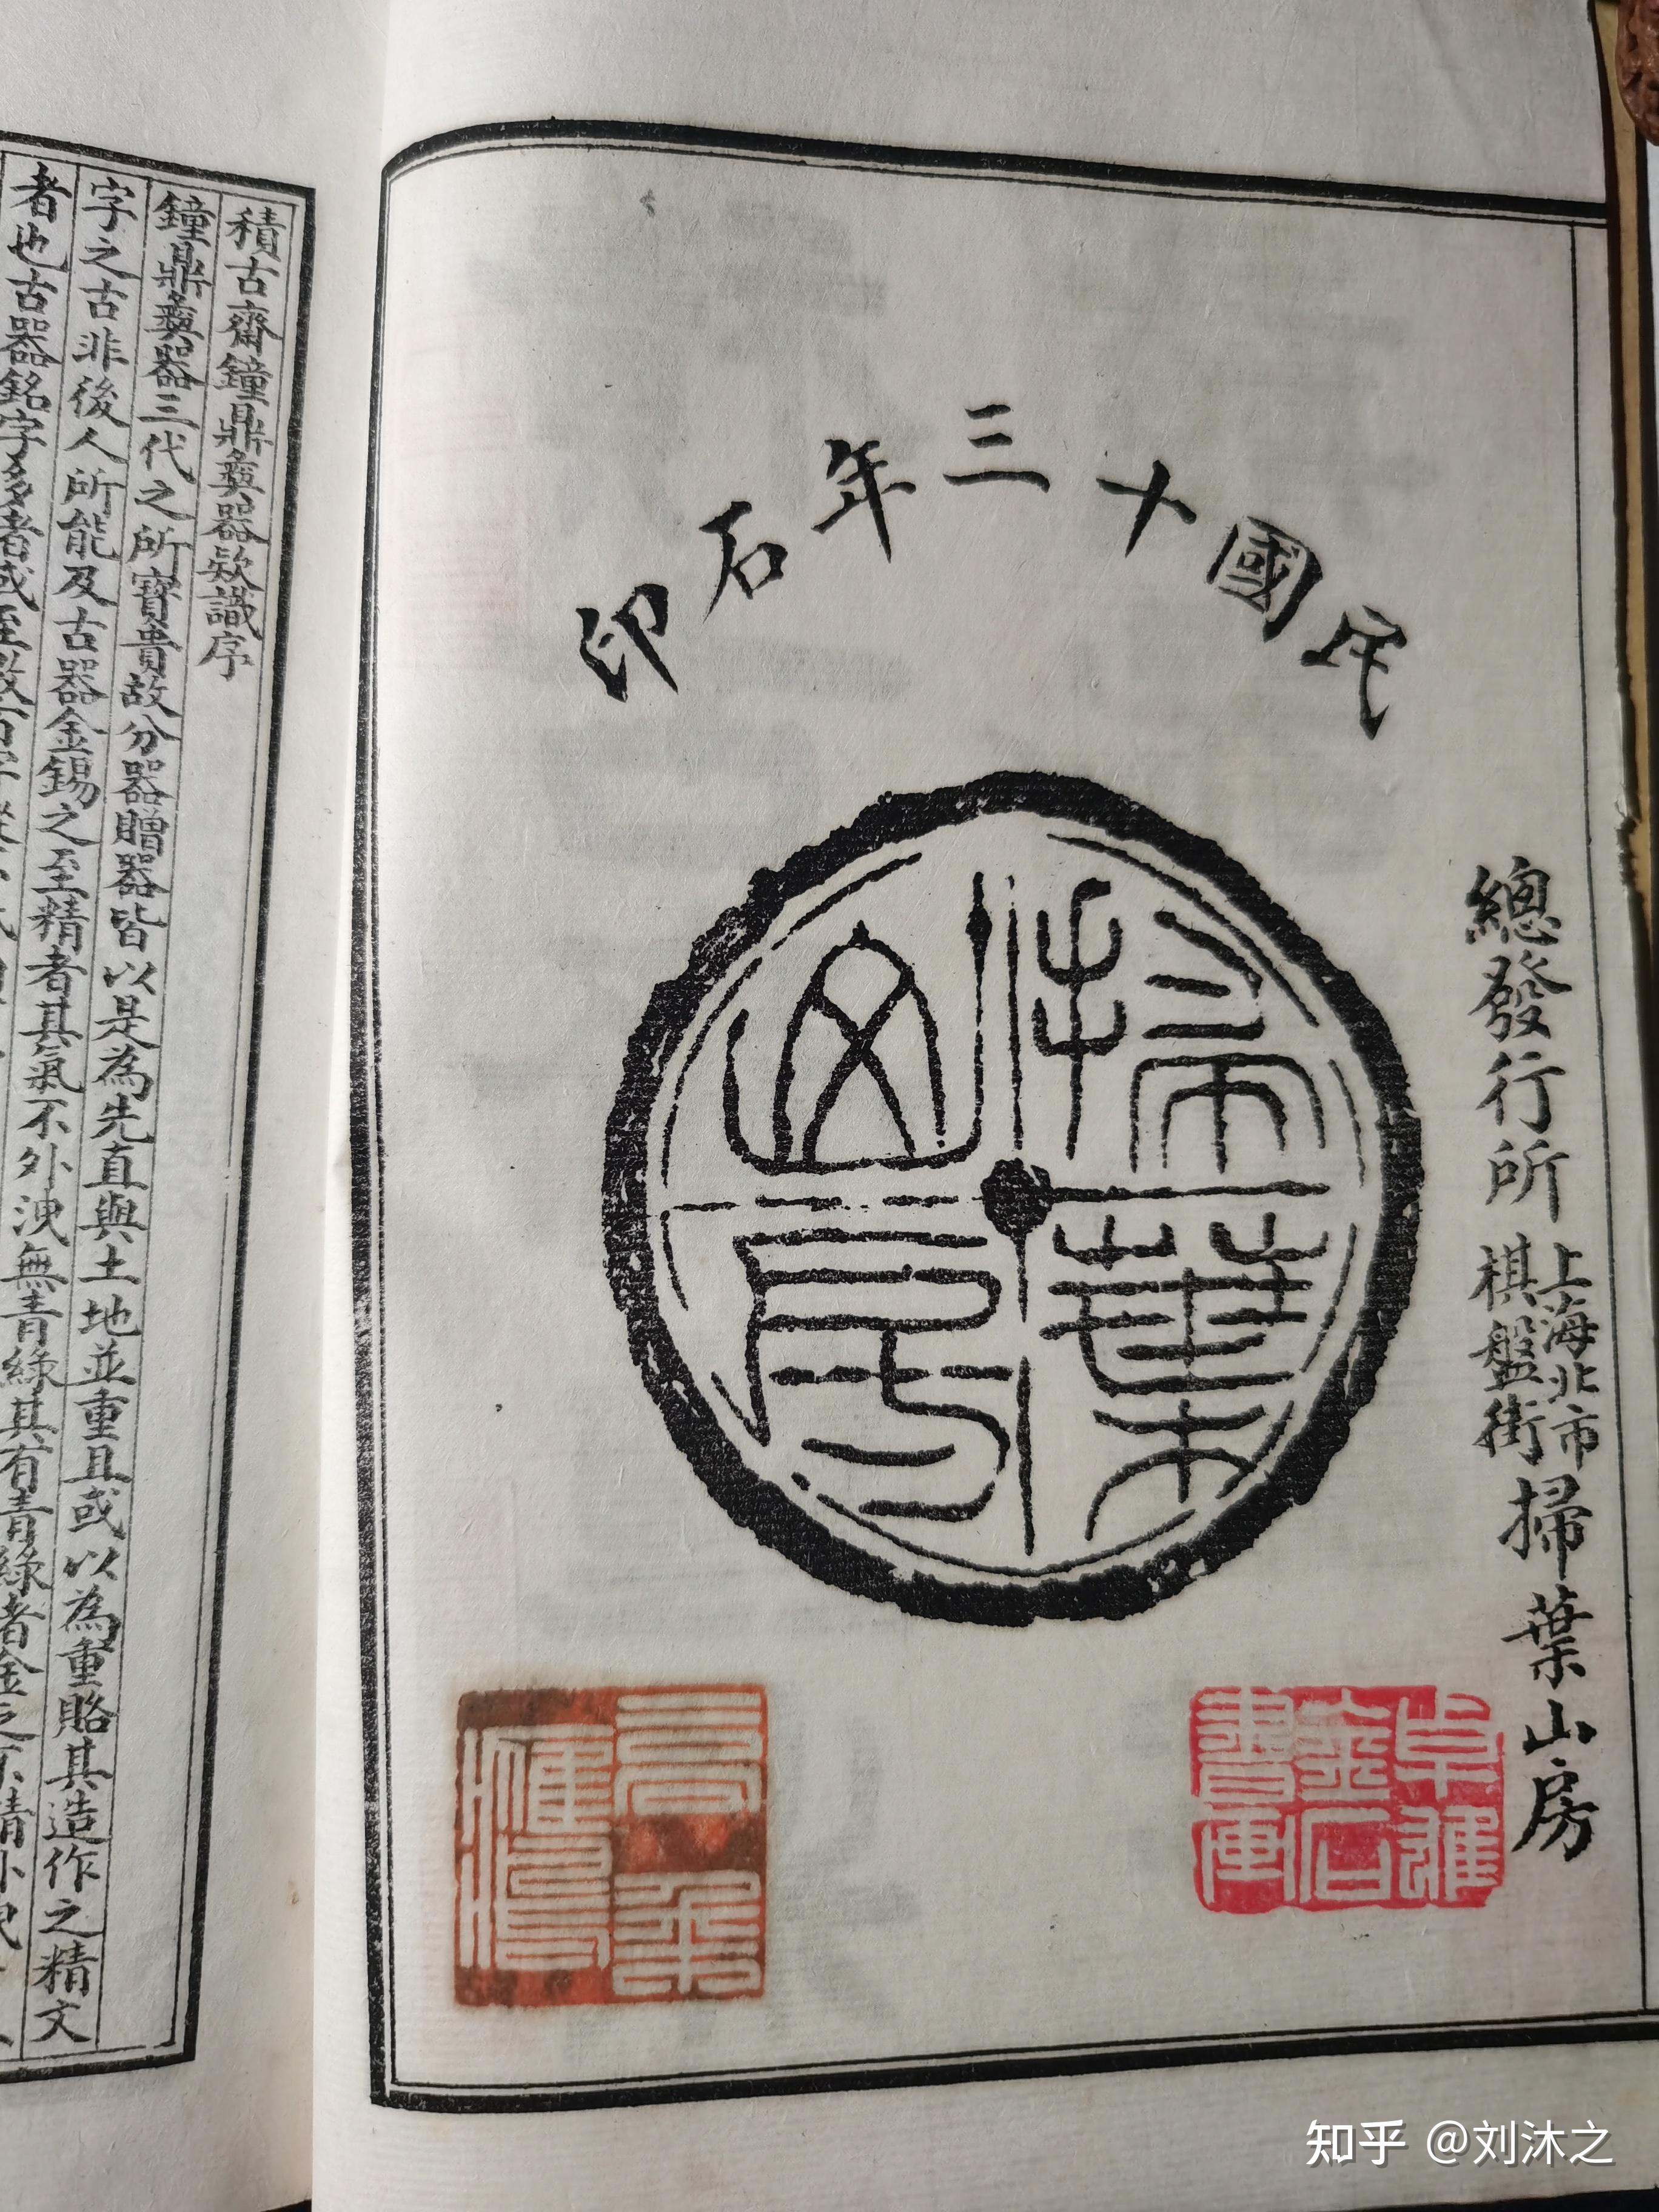 民國十三年石印
掃葉山房
總發行所 上海北市棋盤街 掃葉山房
積古齋鐘鼎彝器款識序
鐘鼎彝器三代之所寶貴故分器贈器皆以是為先直與土地並重且或以為重賂其造作之精文
字之古非後人所能及古器金錫之至精者其氣不外洩無青綠其有青綠者金之不精外洩
者也古器銘字多者或至數百字
知乎 @刘沐之